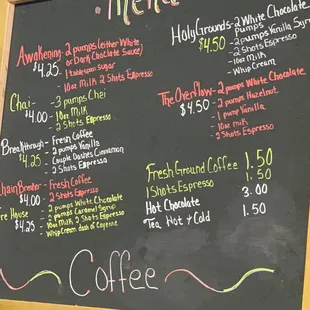 Menu
Awakening - 2 pumps (either White
or Dark Choclate Sauce)
$4.25
1 tablespoon sugar
10oz Milk 2 Shots Espresso
Chai - 3 pumps Chai
$4.00 - 10oz Milk
- 2 Shots Espresso
Breakthrough - Fresh Coffee
- 2 pumps Vanilla
$4.25 - Couple Dashes Cinnamon
- 2 Shots Espresso
Chain Breaker - Fresh Coffee
- 2 Shots Espresso
$4.00 - 2 pumps White Chocolate
House - 2 pumps Caramel Syrup
$4.25 - 10oz Milk 2 Shots Espresso
- Whip Cream dash of Cayene
Holy Grounds - 2 White Chocolate
pumps
$4.50 - 2 pumps Vanilla Syr
- 2 Shots Espresso
- 10oz Milk
- Whip Cream
The Overflow - 2 pumps White Chocolate
$4.50 - 2 pumps Hazelnut
- 1 pump Vanilla
- 10oz milk
- 2 shots Espresso
Fresh Ground Coffee 1.50
1 Shots Espresso 1.50
Hot Chocolate 3.00
Tea Hot & Cold 1.50
Coffee